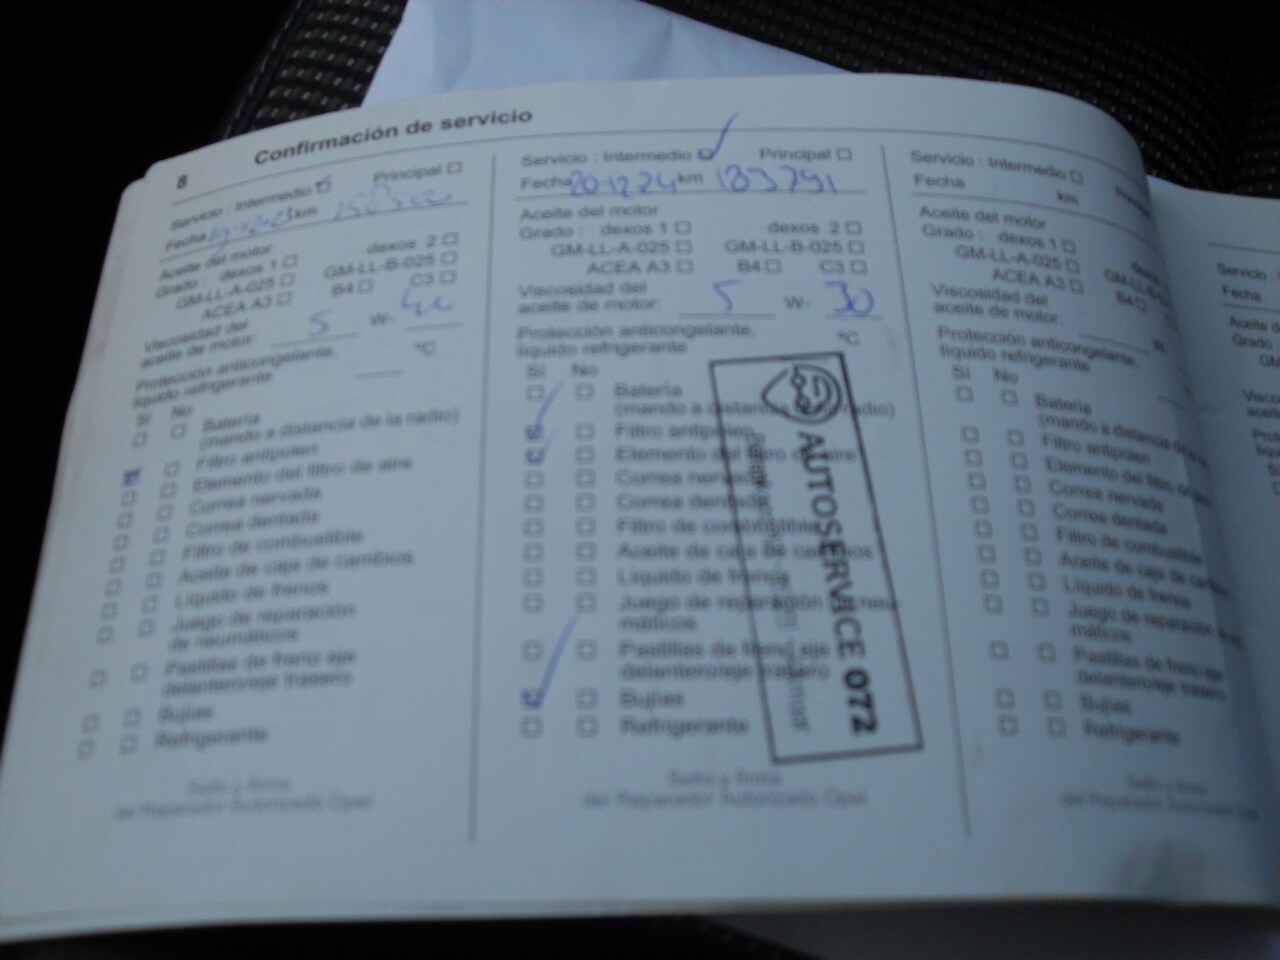 8 Confirmación de servicio
Servicio : Intermedio Principal
Fecha km
Aceite del motor
Grado : dexos 1 dexos 2
GM-LL-A-025 GM-LL-B-025
ACEA A3 B4 C3
Viscosidad del
aceite de motor: 5 W-
Protección anticongelante,
líquido refrigerante °C
Sí No
Batería
(mando a distancia de la radio)
Filtro antipolen
Elemento del filtro de aire
Correa nervada
Correa dentada
Filtro de combustible
Aceite de caja de cambios
Líquido de frenos
Juego de reparación
de neumáticos
Pastillas de freno eje
delantero/eje trasero
Bujías
Refrigerante
Sello y firma
del Reparador Autorizado Opel
Servicio : Intermedio Principal
Fecha 20-12-24 km 183791
Aceite del motor
Grado : dexos 1 dexos 2
GM-LL-A-025 GM-LL-B-025
ACEA A3 B4 C3
Viscosidad del
aceite de motor: 5 W- 30
Protección anticongelante,
líquido refrigerante °C
Sí No
Batería
(mando a distancia radio)
Filtro antipolen
Elemento del filtro de aire
Correa nervada
Correa dentada
Filtro de combustible
Aceite de caja de cambios
Líquido de frenos
Juego de reparación neu-
máticos
Pastillas de freno eje
delantero/eje trasero
Bujías
Refrigerante
AUTOSERVICE 072
Sello y firma
del Reparador Autorizado Opel
Servicio : Intermedio
Fecha km
Aceite del motor
Grado : dexos 1
GM-LL-A-025
ACEA A3 B4
Viscosidad del
aceite de motor:
Protección anticongelante,
líquido refrigerante
Sí No
Batería
(mando a distancia
Filtro antipolen
Elemento del filtro
Correa nervada
Correa dentada
Filtro de combustible
Aceite de caja de
Líquido de frenos
Juego de reparación
máticos
Pastillas de freno eje
delantero/eje trasero
Bujías
Refrigerante
Sello y firma
del Reparador Autorizado
Servicio :
Fecha